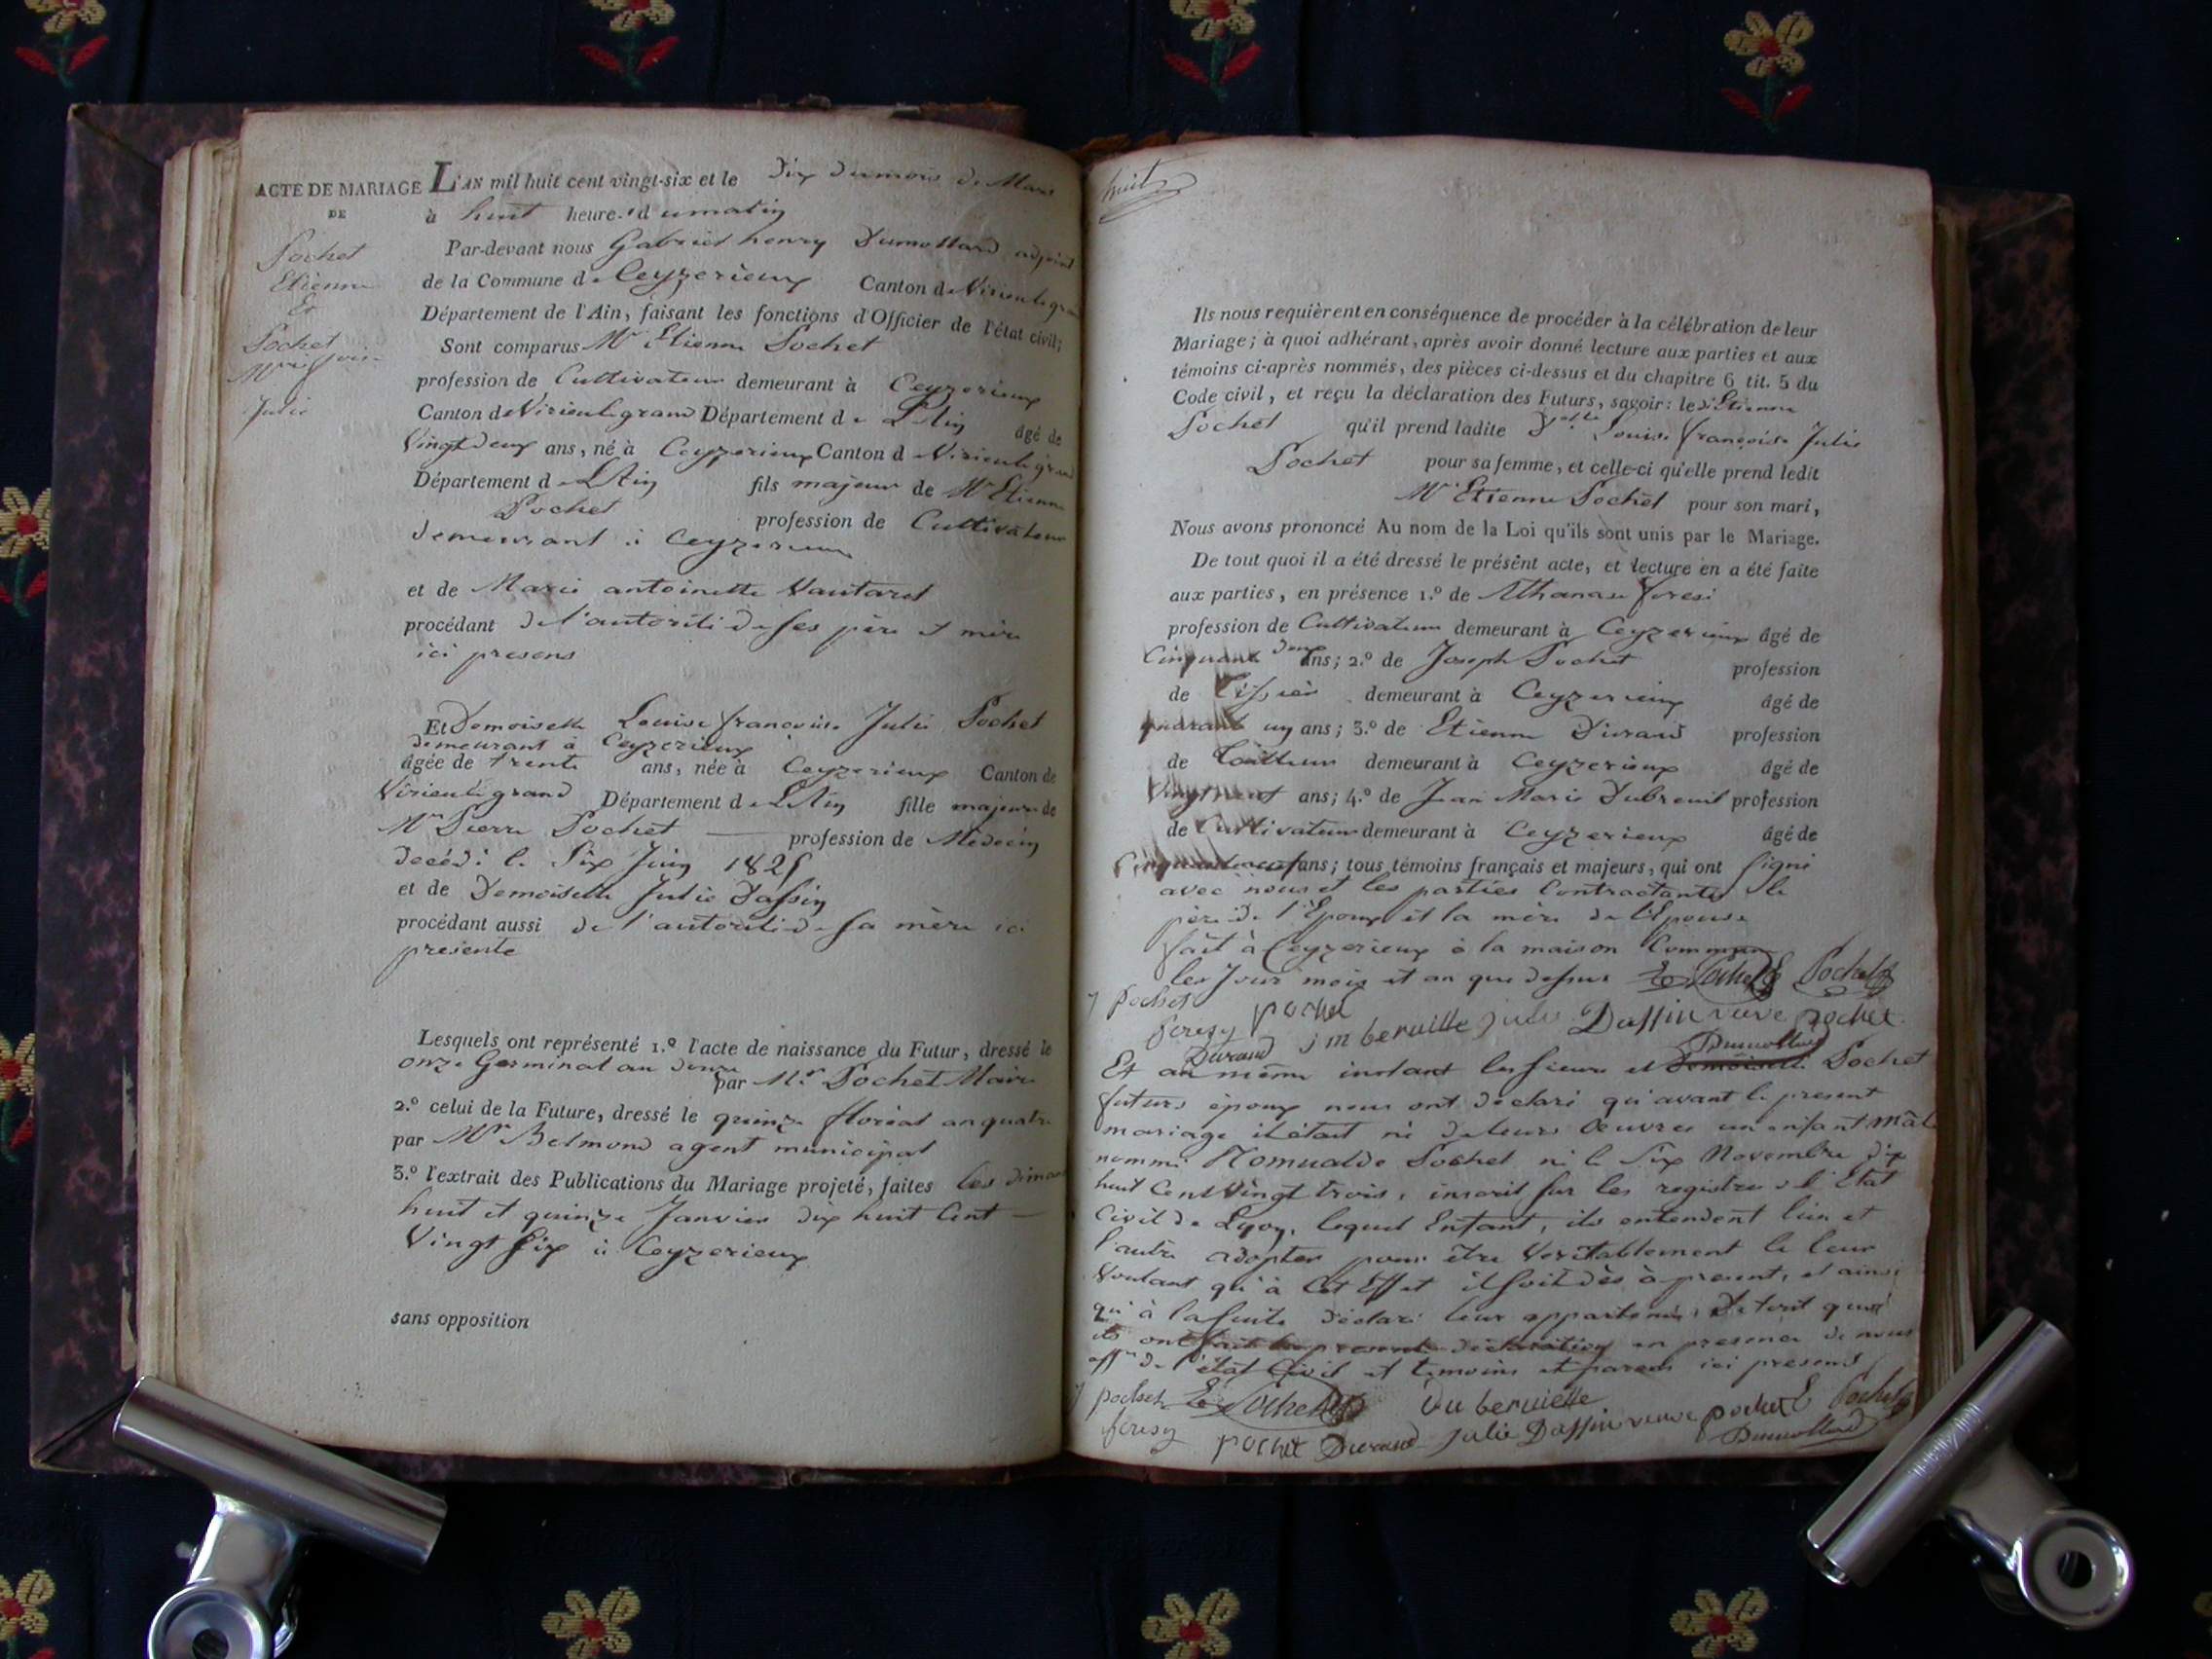 ACTE DE MARIAGE
DE
Pochet
Etienne
Et
Pochet
Julie
L'AN mil huit cent vingt-six et le Dix Dumois de Mars
à huit heures dumatin
Par-devant nous Gabriel henry Dumollard adjoint
de la Commune de Ceyzerieux Canton de Virieulegrand
Département de l'Ain, faisant les fonctions d'Officier de l'état civil;
Sont comparus Mr Etienne Pochet
profession de Cultivateur demeurant à Ceyzerieux
Canton de Virieulegrand Département de L'Ain âgé de
Vingt deux ans, né à Ceyzerieux Canton d Virieulegrand
Département de L'Ain fils majeur de Mr Etienne
Pochet profession de Cultivateur
demeurant à Ceyzerieux
et de Marie antoinette Vautaret
procédant de l'autorité de ses père et mère
ici presens
Et Demoiselle Louise françoise Julie Pochet
demeurant à Ceyzerieux
âgée de trente ans, née à Ceyzerieux Canton de
Virieulegrand Département de L'Ain fille majeure de
Mr Pierre Pochet profession de Médecin
decédé le Six Juin 1825
et de Demoiselle Julie Dassin
procédant aussi de l'autorité de sa mère ici
presente
Lesquels ont représenté 1.º l'acte de naissance du Futur, dressé le
onze Germinal an douze par Mr Pochet Maire
2.º celui de la Future, dressé le quinze floréal an quatre
par Mr Belmond agent municipal
3.º l'extrait des Publications du Mariage projeté, faites les
huit et quinze Janvier dix huit Cent
Vingt Six à Ceyzerieux
sans opposition
huit
Ils nous requièrent en conséquence de procéder à la célébration de leur
Mariage; à quoi adhérant, après avoir donné lecture aux parties et aux
témoins ci-après nommés, des pièces ci-dessus et du chapitre 6 tit. 5 du
Code civil, et reçu la déclaration des Futurs, savoir: le d. Etienne
Pochet qu'il prend ladite Dselle Louise françoise Julie
Pochet pour sa femme, et celle-ci qu'elle prend ledit
Mr Etienne Pochet pour son mari,
Nous avons prononcé Au nom de la Loi qu'ils sont unis par le Mariage.
De tout quoi il a été dressé le présent acte, et lecture en a été faite
aux parties, en présence 1.º de Athanase
profession de Cultivateur demeurant à Ceyzerieux âgé de
Cinquante deux ans; 2.º de Joseph Pochet profession
de Tissier demeurant à Ceyzerieux âgé de
quarante un ans; 3.º de Etienne Durand profession
de Tailleur demeurant à Ceyzerieux âgé de
ans; 4.º de Jean Marie Dubreuil profession
de Cultivateur demeurant à Ceyzerieux âgé de
ans; tous témoins français et majeurs, qui ont signé
avec nous et les parties Contractantes, le
père de l'Epoux et la mère de l'Epouse
fait à Ceyzerieux à la maison Commune
les Jour mois et an que dessus Pochet E Pochet
j pochet
feresy pochet
Durand Julie Dassin veuve pochet
Dumollard
Et au même instant les sieur et Demoiselle Pochet
futurs époux nous ont déclaré qu'avant le present
mariage il était né de leurs Oeuvres un enfant mâle
nommé Romualde Pochet né le Six Novembre dix
huit Cent Vingt trois, inscrit sur les registres de l'Etat
Civil de Lyon, lequel Enfant, ils entendent l'un et
l'autre adopter pour être Veritablement le leur
Voulant qu'à Cet Effet il soit dès à present, et ainsi
qu'à la suite déclaré leur appartenir. De tout quoi
ils ont fait la presente déclaration en presence de nous
offer de l'état Civil et temoins et parens ici presens
j pochet Pochet E Pochet
feresy pochet Durand Julie Dassin veuve pochet
Dumollard